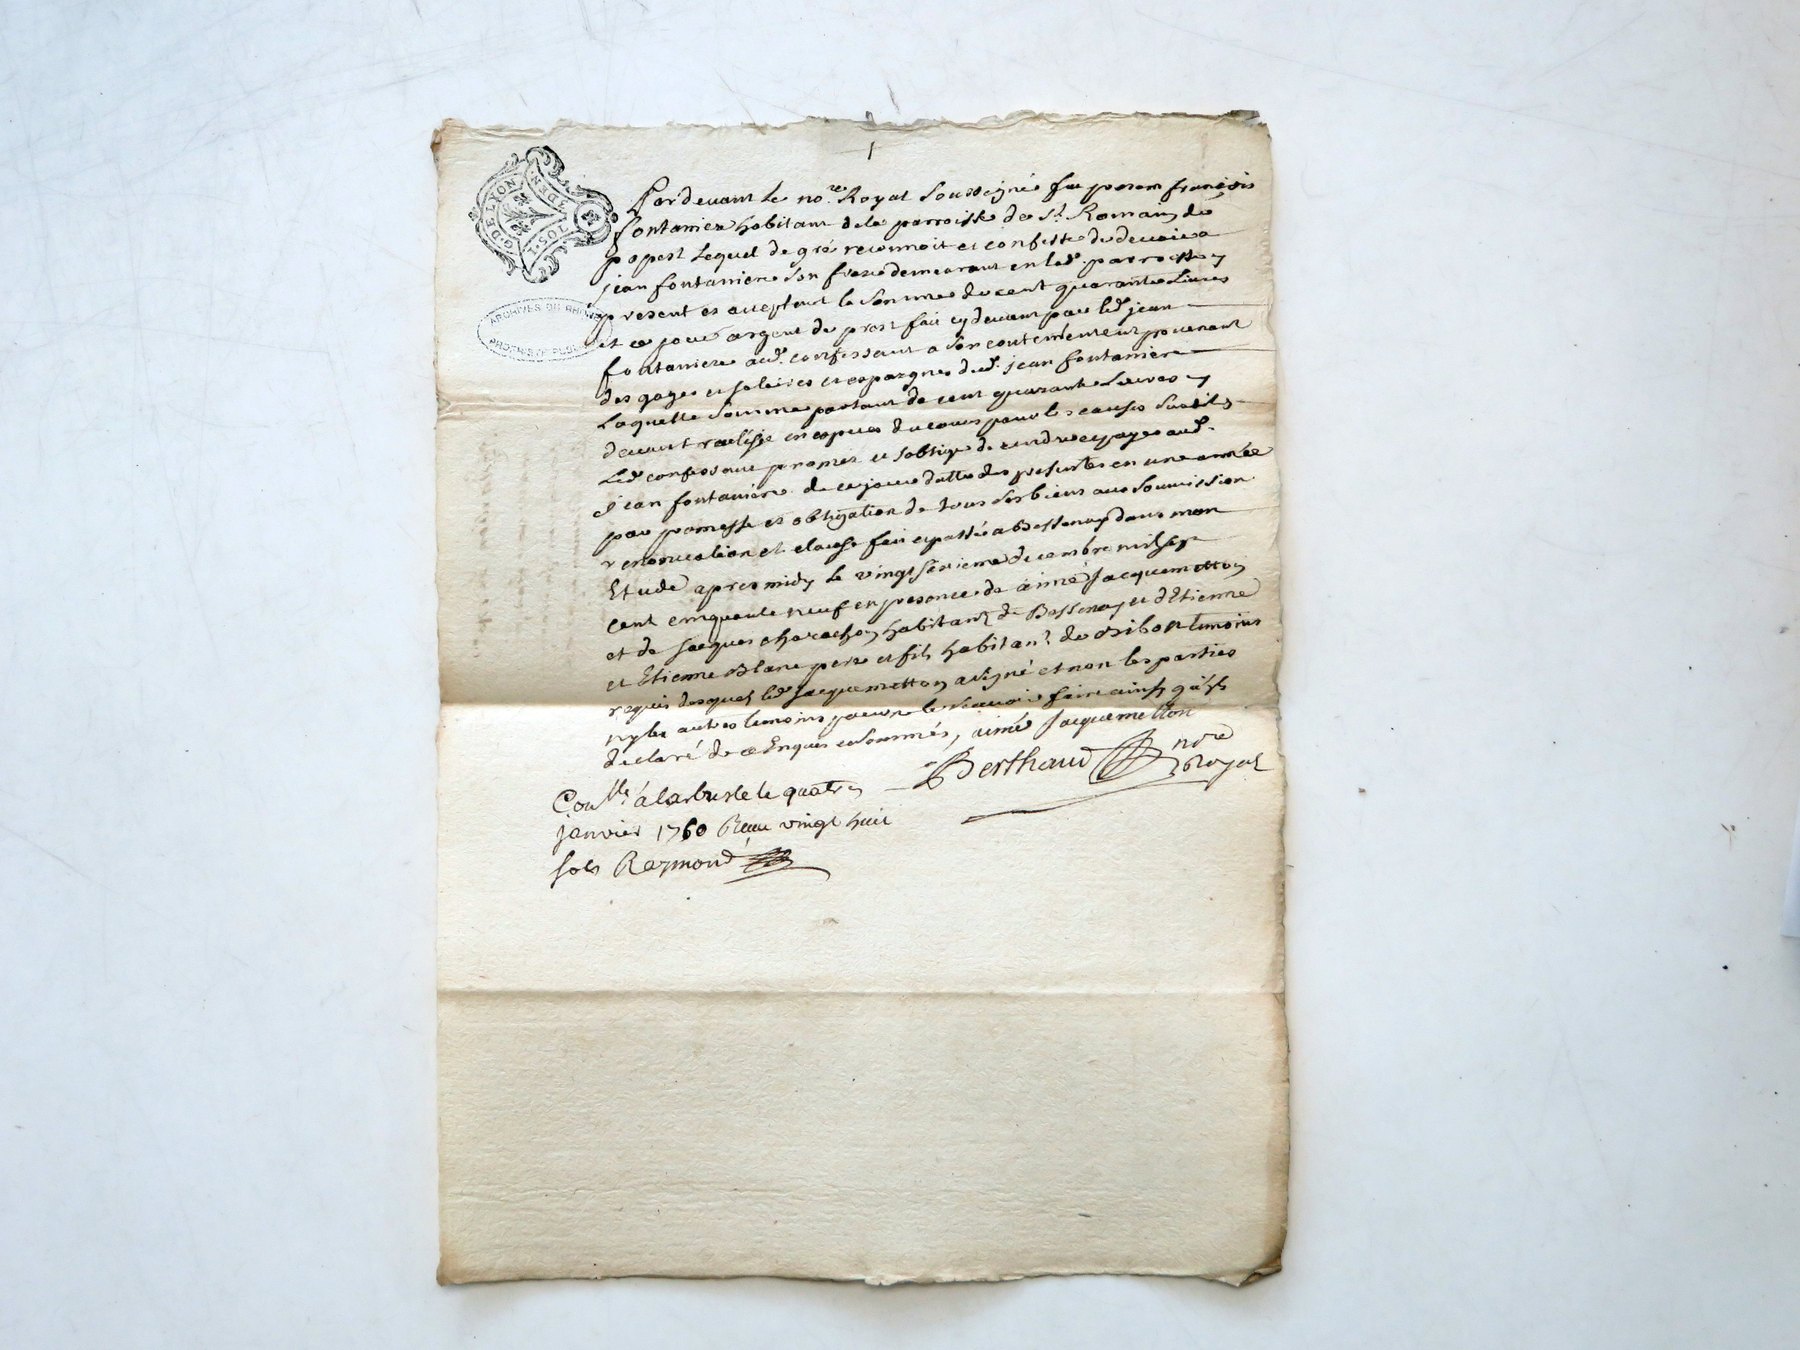 1
G. DE LYON
1. SOL. 4 DEN.
ARCHIVES DU RHONE
PROPRIETE PUBLIQUE
Pardevant le no.re Royal Soussigné fut present françois
fontaniere habitant de la parroisse de St. Romain de
popest Lequel de gré reconnoit et confesse de devoir a
jean fontaniere Son frere demeurant en lad. parroisse
present et acceptant la Somme de cent quarante Livres
et ce pour argent de prest fait cy devant par led. jean
fontaniere aud. confessant a Son contentement provenant
des gages et salaires et espargnes dud. jean fontaniere
Laquelle Somme partant de cent quarante Livres
devant realisée en espices du cours pour les causes Susdites
Led. confessant promet et soblige de rendre et payer aud.
jean fontaniere de ce jour datte des presentes en une année
par promesse et obligation de tous Ses biens aux Soumission
renonciation et clause fait et passé a Bessenay dans mon
Etude apres midy le vingt Sixieme decembre mil sept
cent cinquante neuf en presence de aimé Jacquemetton
et de Jacques charachon habitant de Bessenay et d'Etienne
et Etienne Blanc pere et fils habitant de Bibost temoins
requis desquels led. Jacquemetton a signé et non les parties
ny les autres temoins pour ne le Scavoir faire ainsy qu'ils
declaré de ce Enquis et Sommés, aimé Jacquemetton
Berthaud nore
Royal
Con.lle à larbresle le quatre
janvier 1760 Reçu vingt huit
sols Raymond